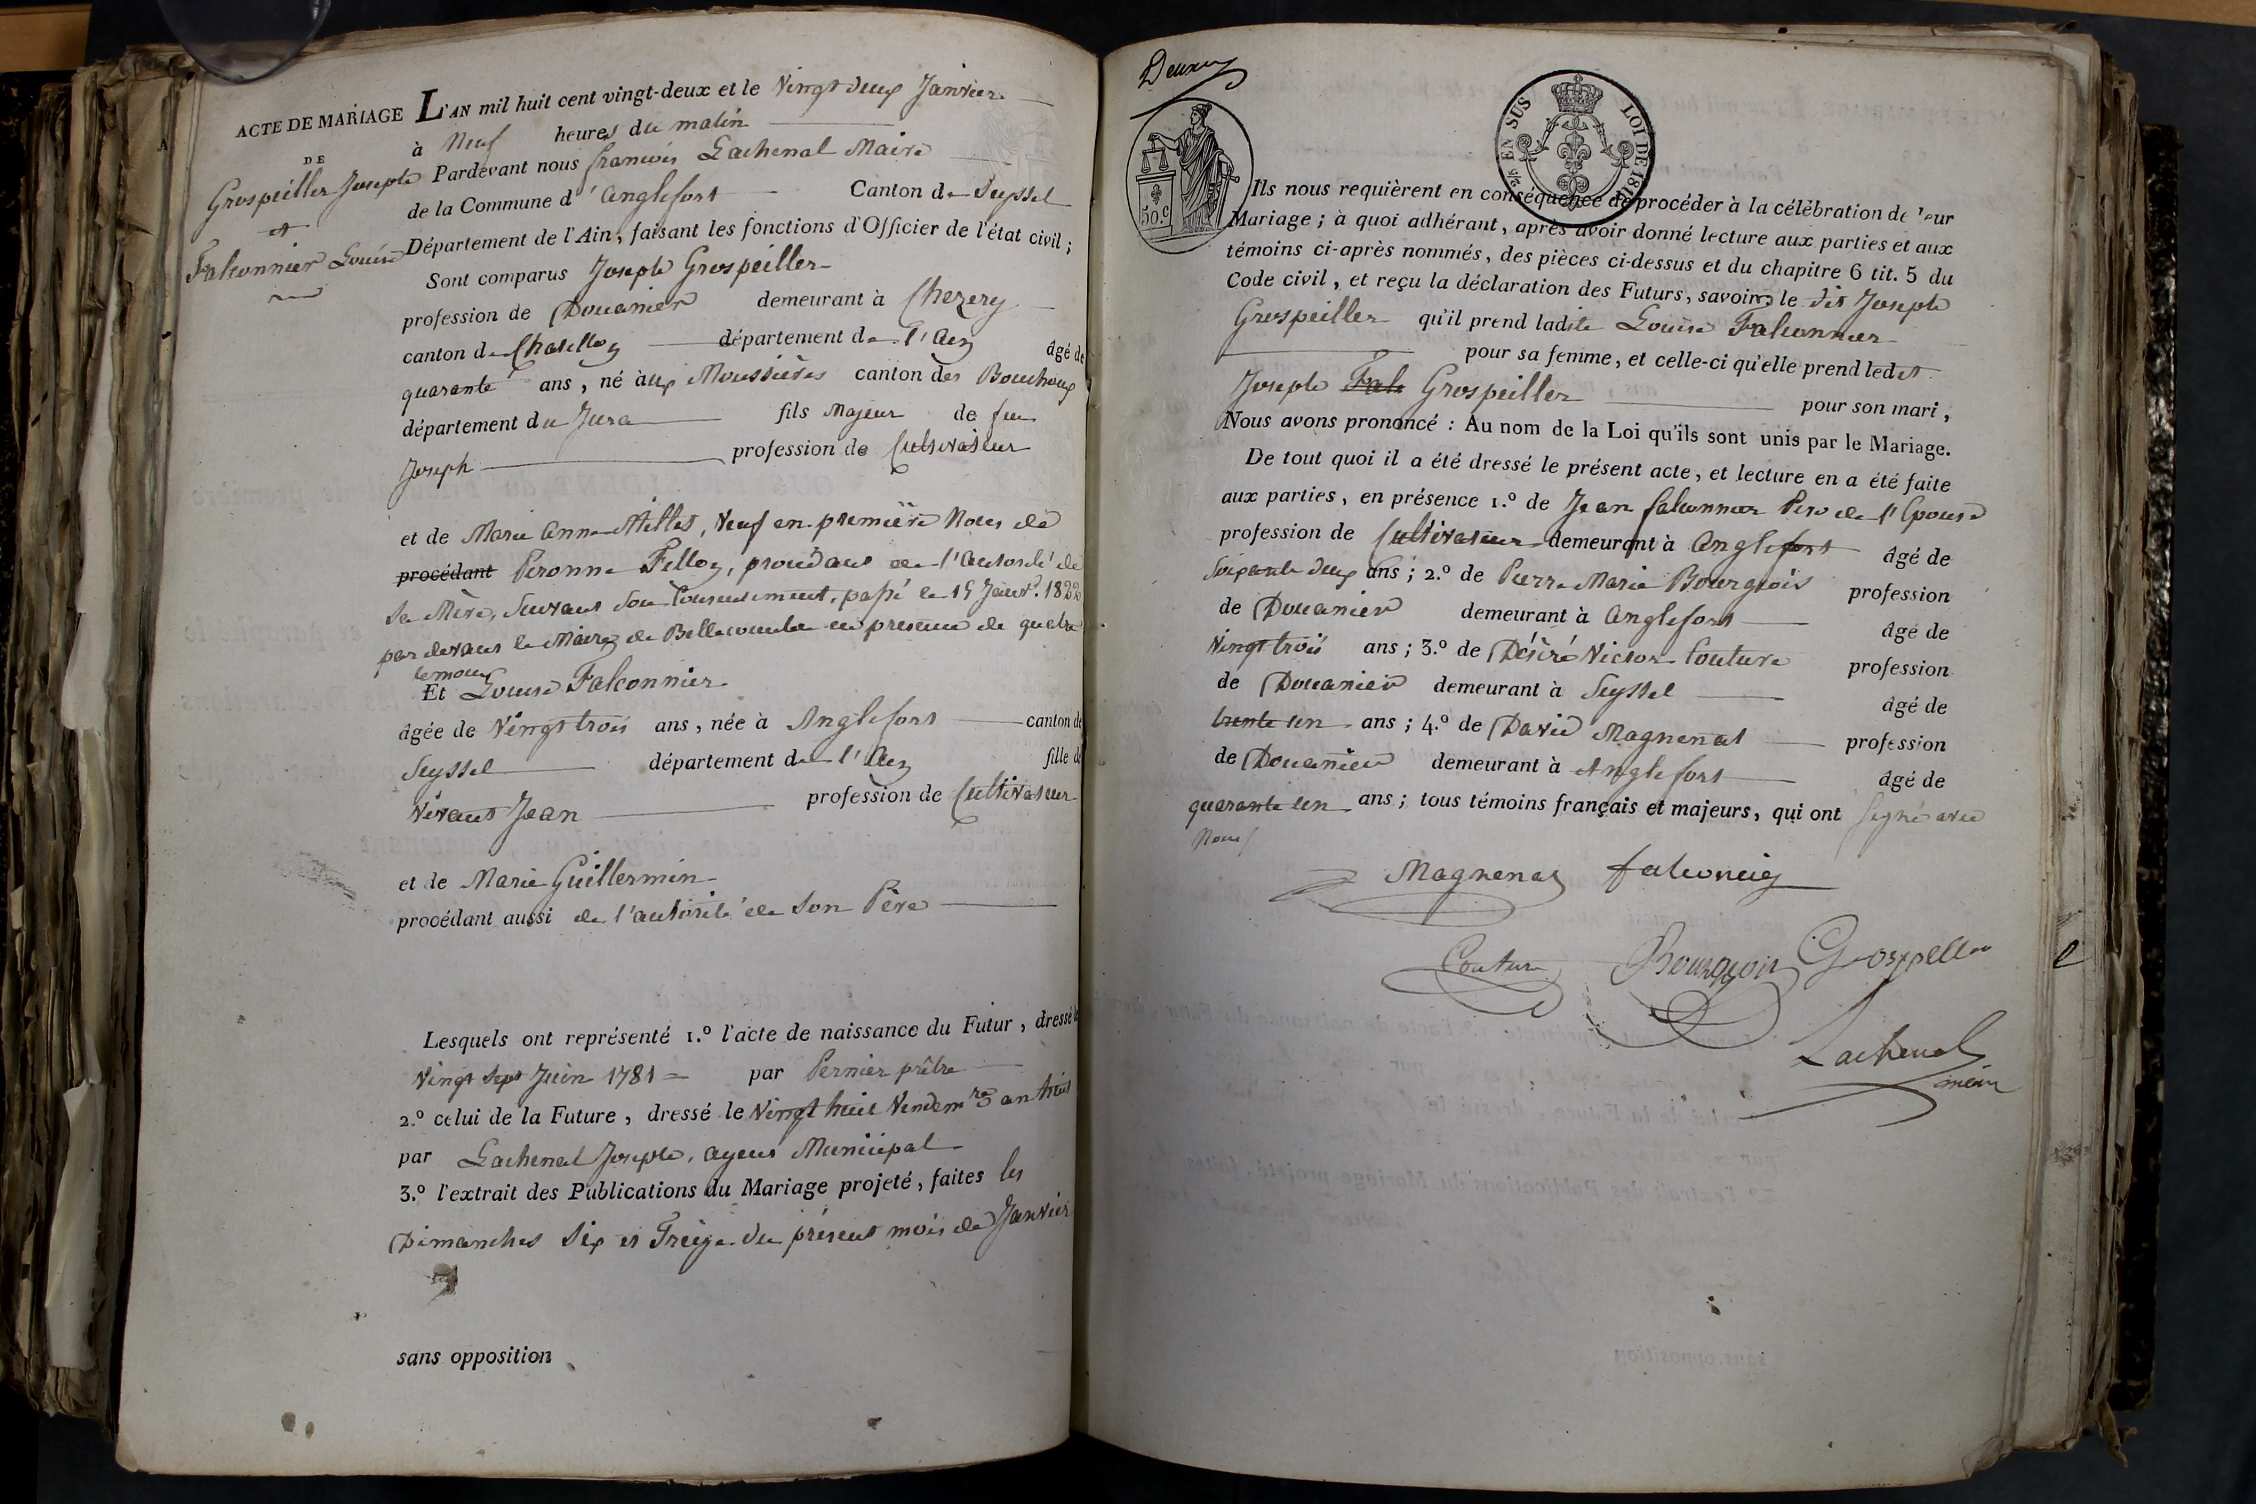 ACTE DE MARIAGE
DE
Grospeiller Joseph
et
Falconnier Louise
L'AN mil huit cent vingt-deux et le Vingt deux Janvier
à Neuf heures du matin
Pardevant nous francois Lachenal Maire
de la Commune d'Anglefort Canton de Seyssel
Département de l'Ain, faisant les fonctions d'Officier de l'état civil ;
Sont comparus Joseph Grospeiller
profession de Douanier demeurant à Chezery
canton de Chatillon département de l'Ain âgé de
quarante ans, né aux Moussières canton des Bouchoux
département du Jura fils Majeur de feu
Joseph profession de Cultivateur
et de Marie Anne Millet, Veuf en première Noces de
procédant Peronne Fillon, procédant de l'autorité de
Sa Mère, Suivant Son Consentement, passé le 15 Janvr. 1822
par devant le Maire de Bellecombe en presence de quatre
temoins
Et Louise Falconnier
âgée de Vingt trois ans, née à Anglefort canton de
Seyssel département de l'Ain fille de
Vivant Jean profession de Cultivateur
et de Marie Guillermin
procédant aussi de l'autorité de Son Père
Lesquels ont représenté 1.º l'acte de naissance du Futur, dressé le
Vingt Sept Juin 1781 par Pernier prêtre
2.º celui de la Future, dressé le Vingt huit Vendemre an huit
par Lachenal Joseph, agent Municipal
3.º l'extrait des Publications du Mariage projeté, faites les
Dimanches Six et Treize du présent mois de Janvier
sans opposition
Deux
50.c
EN SUS LOI DE 1816
Ils nous requièrent en conséquence de procéder à la célébration de leur
Mariage ; à quoi adhérant, après avoir donné lecture aux parties et aux
témoins ci-après nommés, des pièces ci-dessus et du chapitre 6 tit. 5 du
Code civil, et reçu la déclaration des Futurs, savoir, le dit Joseph
Grospeiller qu'il prend ladite Louise Falconnier
pour sa femme, et celle-ci qu'elle prend ledit
Joseph Falc Grospeiller pour son mari,
Nous avons prononcé : Au nom de la Loi qu'ils sont unis par le Mariage.
De tout quoi il a été dressé le présent acte, et lecture en a été faite
aux parties, en présence 1.º de Jean falconnier Père de l'Epouse
profession de Cultivateur demeurant à Anglefort âgé de
Soixante deux ans ; 2.º de Pierre Marie Bourgeois profession
de Douanier demeurant à Anglefort âgé de
Vingt trois ans ; 3.º de Désiré Victor Couture profession
de Douanier demeurant à Seyssel âgé de
trente un ans ; 4.º de David Magnenat profession
de Douanier demeurant à Anglefort âgé de
quarante un ans ; tous témoins français et majeurs, qui ont Signé avec
Nous
Magnenat falconnier
Couture Bourgeois Grospellier
Lachenal
maire